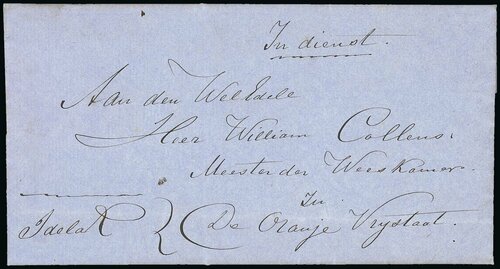 In dienst.
Aan den WelEdele
Heer William Collens,
Meester der Weeskamer.
In
De Oranje Vrystaat.